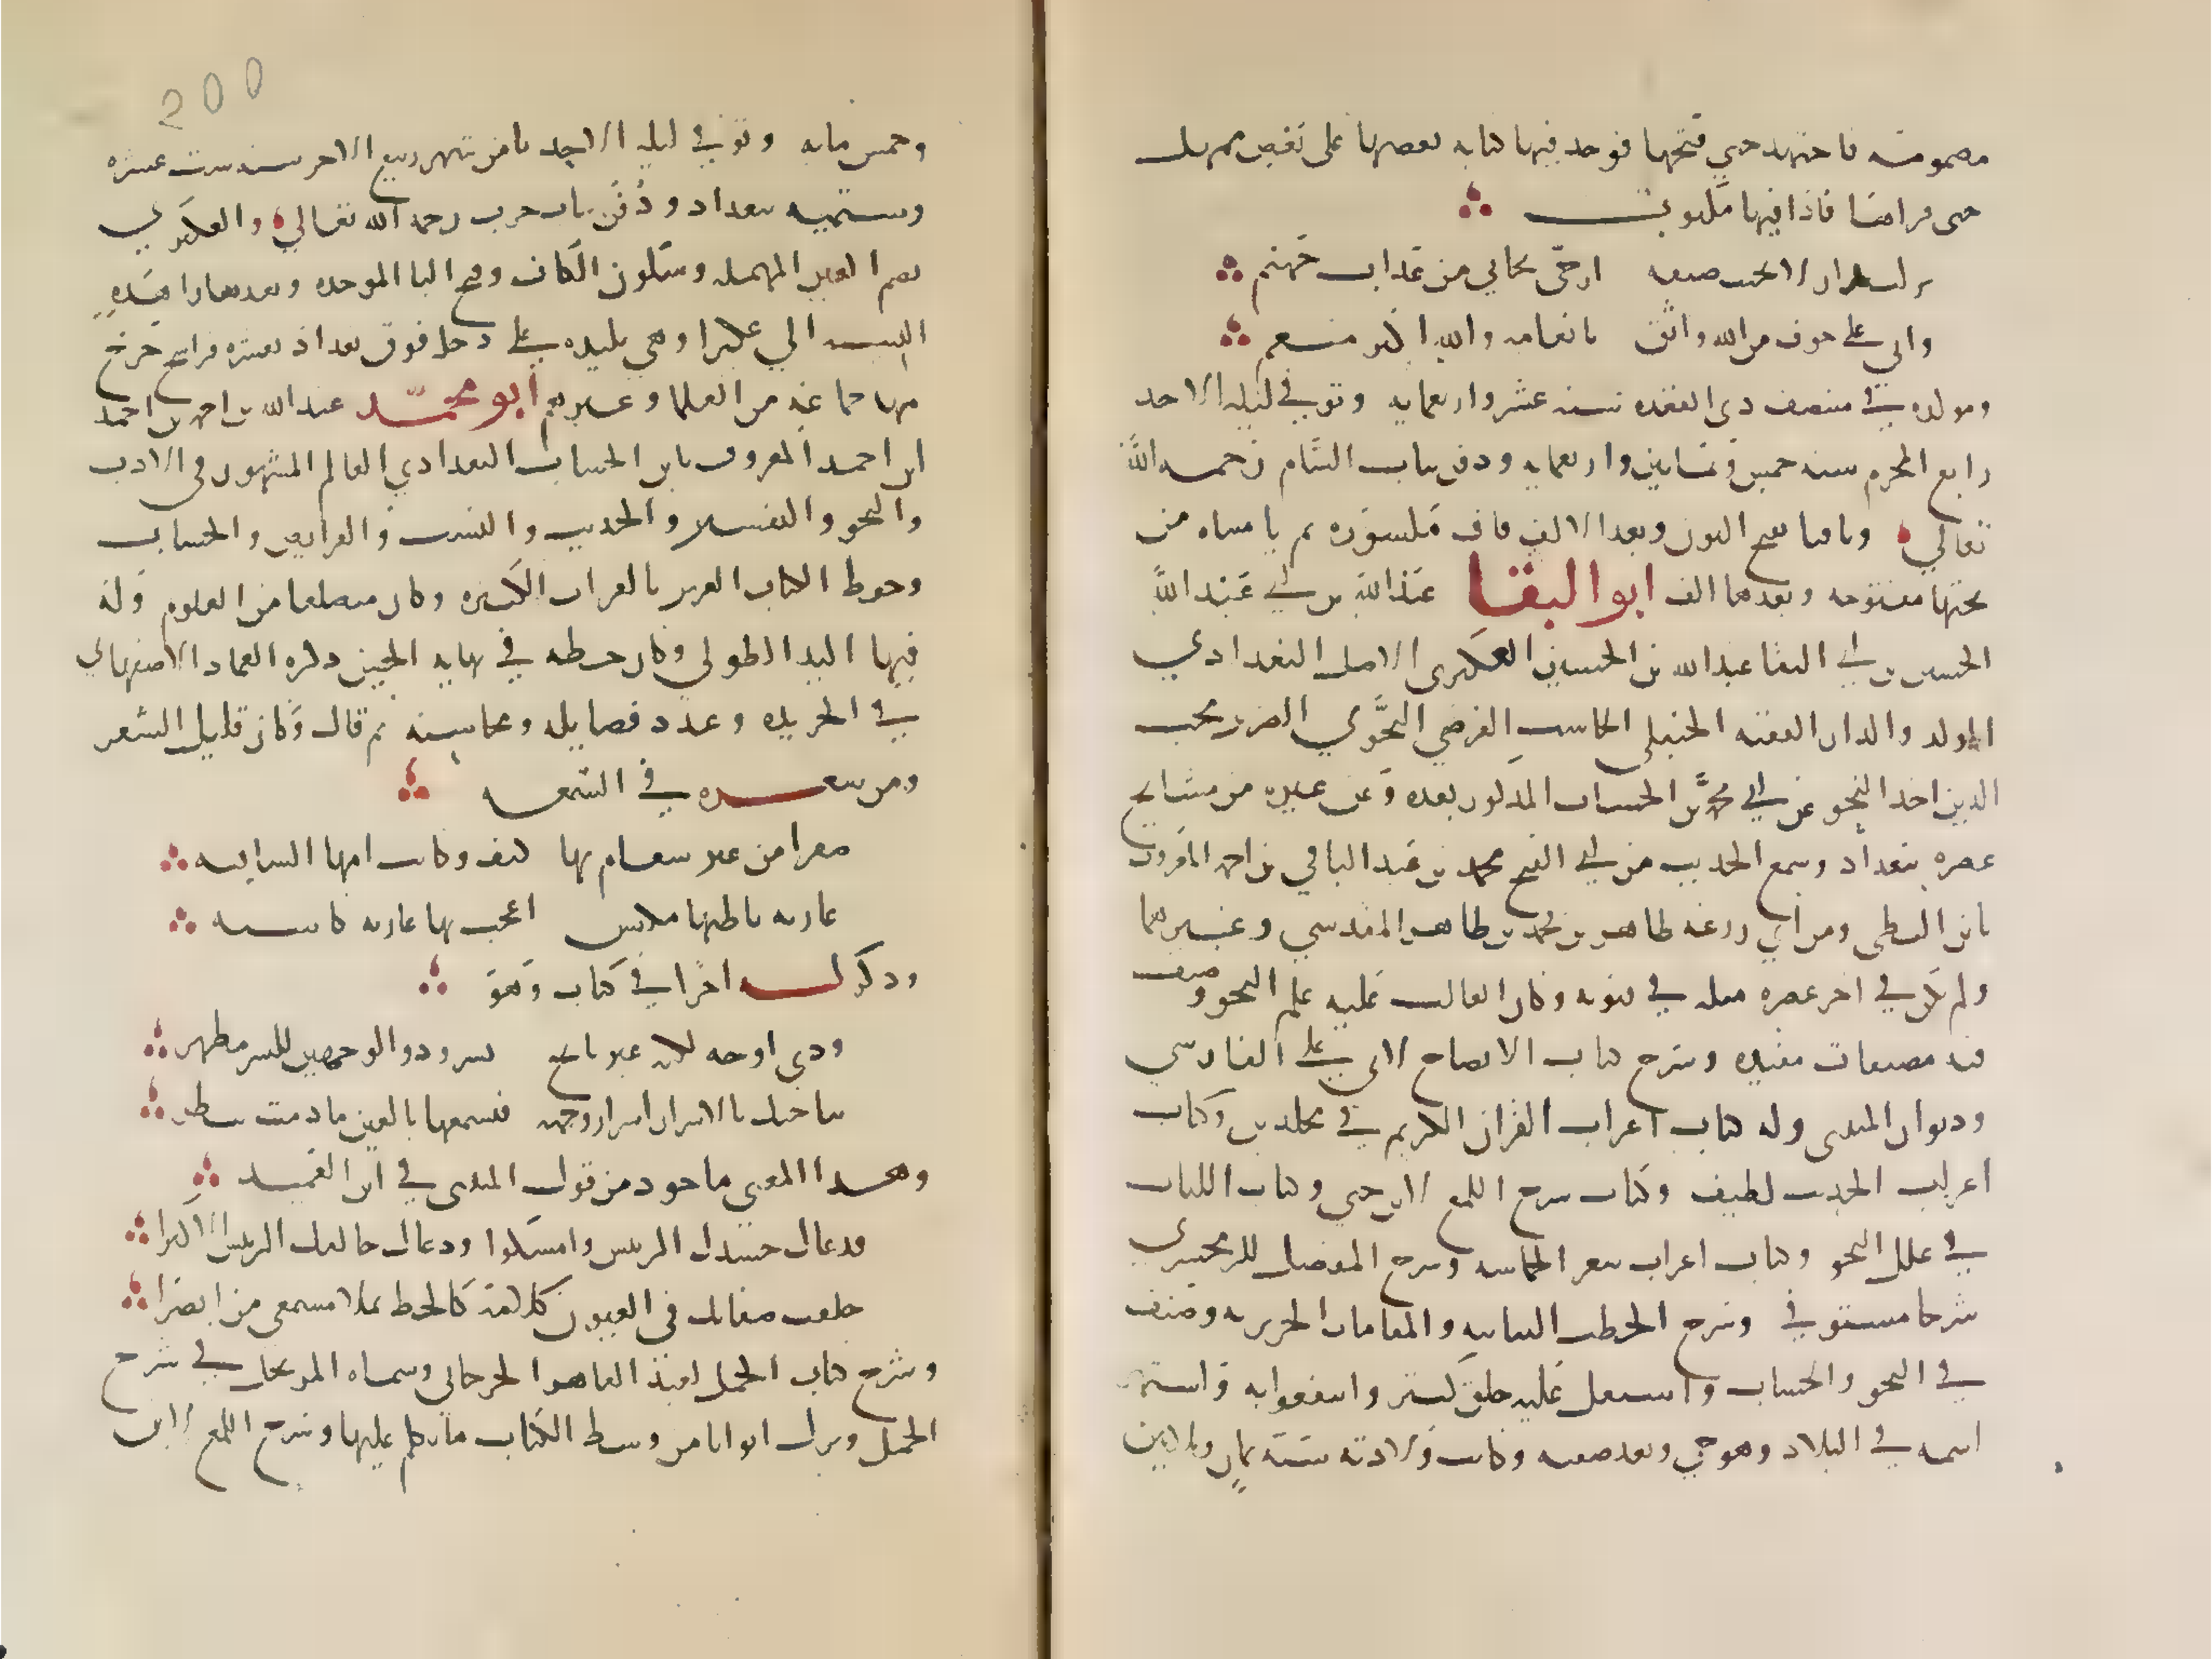 مضمومة فاجتهد حتى فتحها فوجد فيها كتابه بعضها على بعض فتمهل
حتى قراها فاذا فيها مكتوب
نزلت بجار لا يخيب ضيفه ارجى نجاتي من عذاب جهنم
واني على خوف من الله واثق بانعامه والله اكرم منعم
ومولده في منتصف ذي القعده سنه عشر واربعمايه وتوفي ليله الاحد
رابع المحرم سنه خمس وثمانين واربعمايه ودفن بباب الشام رحمه الله
تعالي وناقيا بفتح النون وبعد الالف قاف مكسوره ثم يا مثناه من
تحتها مفتوحه وبعدها الف ابو البقا عبد الله بن ابي عبد الله
الحسين بن ابي البقا عبد الله بن الحسين العكبري الاصل البغدادي
المولد والدار الفقيه الحنبلي الحاسب الفرضي النحوي الضرير محب
الدين اخذ النحو عن ابي محمد بن الخشاب المذكور بعده وعن غيره من مشايخ
عصره ببغداد وسمع الحديث من ابي الفتح محمد بن عبد الباقي بن احمد المعروف
بابن البطي ومن ابي زرعه طاهر بن محمد بن طاهر المقدسي وغيرهما
ولم يكن في اخر عصره مثله في فنونه وكان الغالب عليه علم النحو وصنف
فيه مصنفات مفيده وشرح كتاب الايضاح لابي علي الفارسي
وديوان المتنبي وله كتاب اعراب القران الكريم في مجلدين وكتاب
اعراب الحديث لطيف وكتاب شرح اللمع لابن جني وكتاب اللباب
في علل النحو وكتاب اعراب شعر الحماسه وشرح المفصل للزمخشري
شرحا مستوفي وشرح الخطب النباتيه والمقامات الحريريه وصنف
في النحو والحساب واشتغل عليه خلق كثير وانتفعوا به واشتهر
اسمه في البلاد وهو حي وبعد صيته وكانت ولادته سنه ثمان وثلاثين
200
وخمس مايه وتوفي ليله الاحد ثامن شهر ربيع الاخر سنه ست عشره
وستميه ببغداد ودفن بباب حرب رحمه الله تعالي والعكبري
بضم العين المهمله وسكون الكاف وفتح البا الموحده وبعدها را هذه
النسبه الي عكبرا وهي بليده علي دجله فوق بغداد بعشره فراسخ خرج
منها جماعه من العلما وغيرهم ابو محمد عبد الله بن احمد بن احمد
ابن احمد المعروف بابن الخشاب البغدادي العالم المشهور في الادب
والنحو والتفسير والحديث والنسب والفرايض والحساب
وحفظ الكتاب العزيز بالقراات الكثيره وكان متضلعا من العلوم وله
فيها اليد الطولي وكان خطه في نهايه الحسن ذكره العماد الاصفهاني
في الخريده وعدد فضايله ومحاسنه ثم قال وكان قليل الشعر
ومن شعره في الشمعه
صفرا من غير سقام بها كيف وكانت امها الشافيه
عاريه باطنها مكتس اعجب بها عاريه كاسيه
وذكر له لغزا في كتاب وهو
وذي اوجه لكنه غير بايح بسر وذو الوجهين للسر مظهر
تناجيك بالاسرار اسرار وجهه فتسمعها بالعين ما دمت تنظر
وهذا المعني ماخوذ من قول المتنبي في ابن العميد
فدعاك حسدك الرييس وامسكوا ودعاك خالقك الرييس الاكبرا
خلفت صفاتك في العيون كلامه كالخط يملا مسمعي من ابصرا
وشرح كتاب الجمل لعبد القاهر الجرجاني وسماه المرتجل في شرح
الجمل وترك ابوابا من وسط الكتاب ما تكلم عليها وشرح اللمع لابن